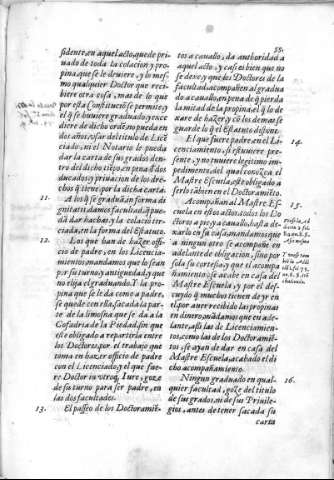 55.
sidente, en aquel acto, quede pri-
uado de toda la colacion y pro-
pina, que se le deuiere, y lo mes-
mo qualquier Doctor que reci-
biere otra cosa, mas de lo que
por esta Constituciō se permite, y
el q̃ se huuiere graduado, y exce
diere de dicho ordē, no pueda en
dos años, vsar del titulo de Licē
ciado, ni el Notario le pueda
dar la carta de sus grados den-
tro del dicho tiēpo, en pena d̃ dos
ducados, y priuacion de los dre-
chos q̃ tiene, por la dicha carta.
11. A los q̃ se graduā, en forma di-
gnitatis, damos facultad, q̃ pue-
dā dar hachas, y la colaciō ter-
ciada, en la forma del Estatuto.
12. Los que han de hazer offi-
cio de padre, en los Licencia-
mientos, mandamos que lo sean
por su turno, y antiguedad, y que
no elija el graduando. Y la pro-
pina que se le da como a padre,
se quede con ella, sacada la par-
te de la limosna que se da a la
Cofadria de la Piedad, sin que
este obligado a repartirla entre
los Doctores, por el trabajo que
toma en hazer officio de padre
con el Licenciado, y el que fue-
re Doctor in vtroq̃ Iure, goze
de su turno para ser padre, en
las dos facultades.
13. El passeo de los Doctoramiē-
tos a cauallo, da authoridad a
aquel acto, y assi es bien que no
se dexe, y que los Doctores de la
facultad, acompañen al gradua
do a cauallo, en pena de q̃ pierda
la mitad de la propina, el q̃ lo de
xare de hazer, y cō los demas se
guarde lo q̃ el Estatuto dispone.
14. El que fuere padre en el Li-
cenciamiento, si estuuiere pre-
sente, y no tuuiere legitimo im-
pedimento, del qual conozca el
Maestre Escuela, este obligado a
serlo tābien en el Doctoramiēto.
15. Acompañan al Maestre Es-
cuela en estos actos, todos los Do
ctores a pie y a cauallo, hasta de-
xarlo en su casa, mandamos que
a ninguno otro se acompañe en
adelante de obligacion, sino por
sola su cortesia, y que el acompa
ñamiento, se acabe en casa del
Maestre Escuela, y por el des-
cuydo q̃ muchos tienen de yr en
el, por auer recebido las propinas
en dinero, mādamos que en ade-
lante, assi las de Licenciamien-
tos, como las de los Doctoramiē-
tos, se ayan de dar en casa del
Maestre Escuela, acabado el di
cho acompañamiento.
16. Ningun graduado en qual-
quier facultad, goze del titulo
de sus grados, ni de sus Priuile-
gios, antes de tener sacada su
carta